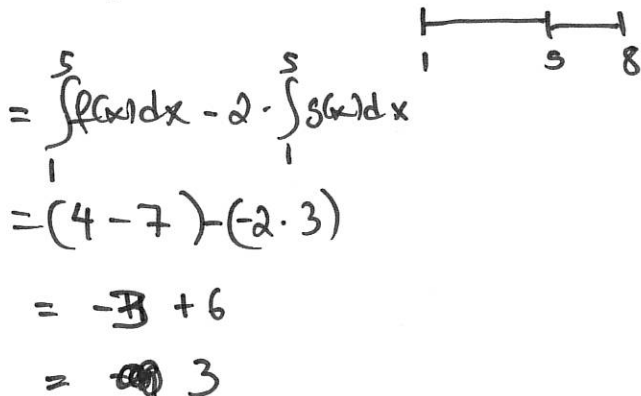 1 5 8
= ∫₁⁵ f(x)dx - 2 · ∫₁⁵ g(x)dx
= (4 - 7) - (-2 · 3)
= -3 + 6
= 3